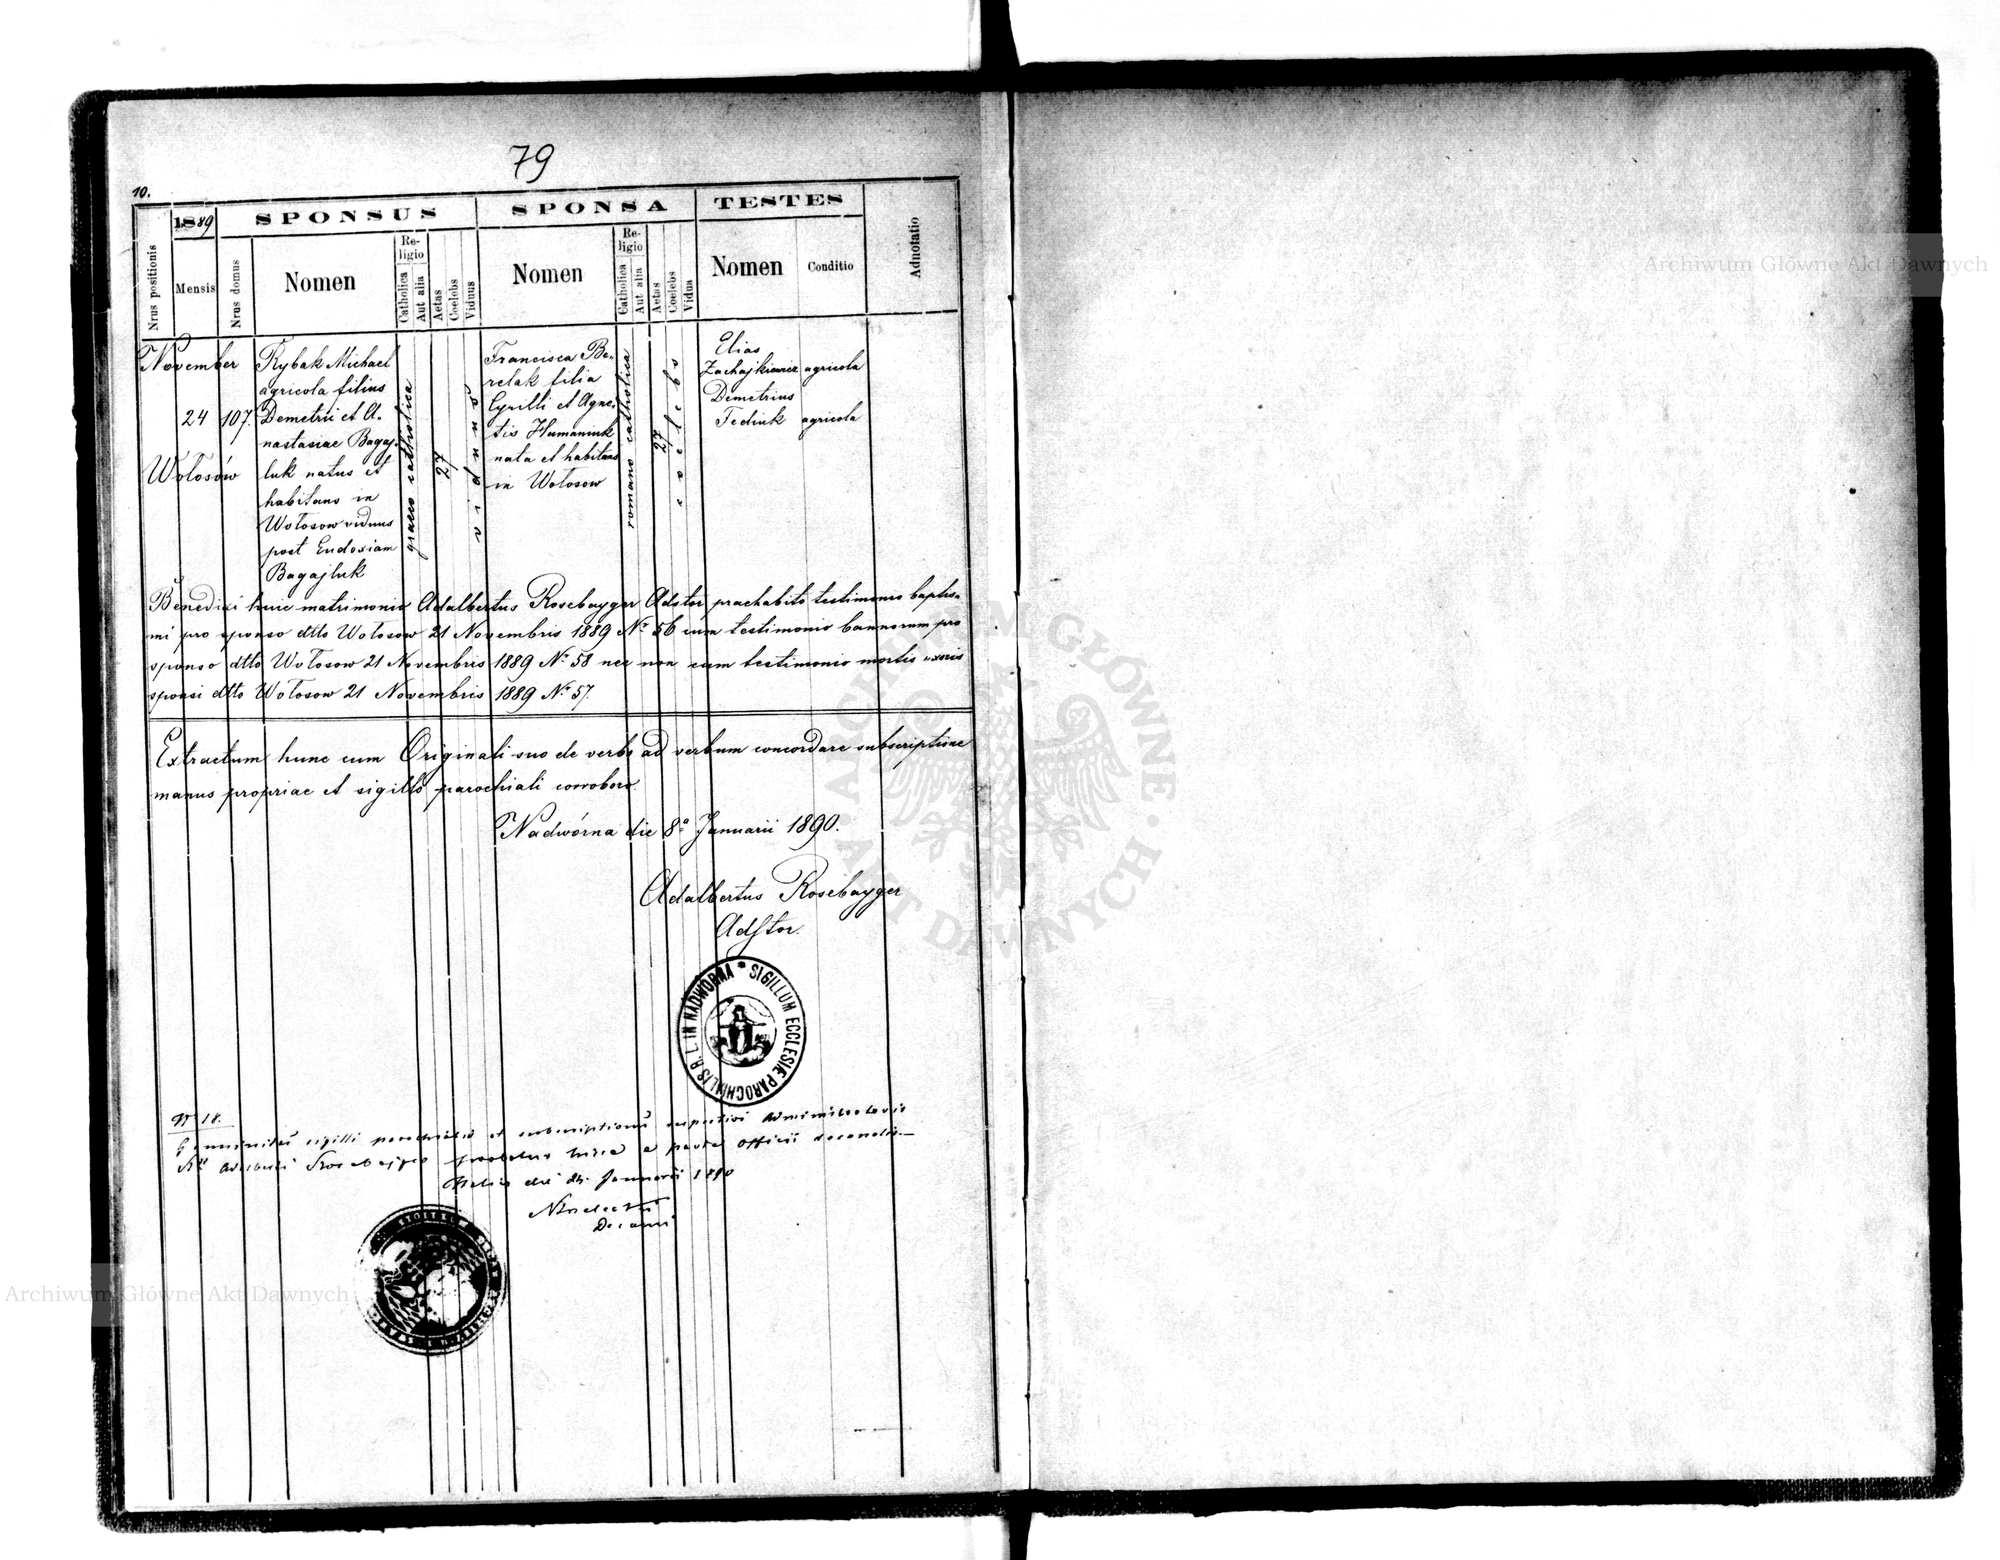 79
10.
1889
SPONSUS
SPONSA
TESTES
Nrus positionis
Mensis
Nrus domus
Nomen
Religio
Catholica
Aut alia
Aetas
Coelebs
Viduus
Nomen
Religio
Catholica
Aut alia
Aetas
Coelebs
Vidua
Nomen
Conditio
Adnotatio
November
24
107.
Wołosów
Rybak Michael
agricola filius
Demetrii et A-
nastasiae Bagaj-
luk natus et
habitans in
Wołosow viduus
post Eudoxiam
Bagajluk
graeco catholica
27
viduus
Francisca Be-
relak filia
Cyrilli et Agne-
tis Humaniuk
nata et habitans
in Wołosow
romano catholica
27
coelebs
Elias
Zachajkiewicz agricola
Demetrius
Fediuk agricola
Benedixi huic matrimonio Adalbertus Rosebayger Adstor praehabito testimonio baptis-
mi pro sponso dtto Wołosow 21 Novembris 1889 Nr 56 cum testimonio bannorum pro
sponso dtto Wołosow 21 Novembris 1889 Nr 58 nec non cum testimonio mortis uxoris
sponsi dtto Wołosow 21 Novembris 1889 Nr 57.
Extractum hunc cum Originali suo de verbo ad verbum concordare subscriptione
manus propriae et sigillo parochiali corroboro.
Nadwórna die 8ª Januarii 1890.
Adalbertus Rosebayger
Adstor.
SIGILLUM ECCLESIÆ PAROCHIALIS R. L. IN NADWORNA
Nr 18.
sigilli parochialis et subscriptionis respectivi Administratoris
a parte officii decanalis
die 24. Januarii 1890
Archiwum Główne Akt Dawnych
Archiwum Główne Akt Dawnych
ARCHIWUM GŁÓWNE AKT DAWNYCH